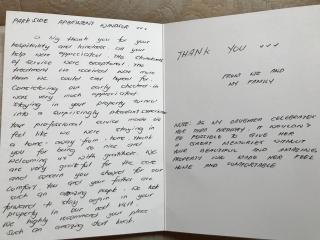 PARKSIDE APARTMENT WINDSOR ...
A big thank you for your
hospitality and kindness as your
help were appreciated. The standards
of service were exceptional. The
treatment we received were more
than we could ever hoped for.
Considering our early checked-in
was very much appreciated.
Staying in your property turned
into a surprisingly pleasant experience.
Your professional service made us
feel like we were staying in
a home-away-from-home. Thank
you for being so nice and
welcoming us with gratitude. We
are very grateful for the care
and concern you showed for our
comfort. You and your father are
such an amazing people. We look
forward to stay again in your
property in our next visit.
We highly recommend your place.
Such an amazing
THANK YOU ...
FROM ME AND
MY FAMILY
NOTE: AS MY DAUGHTER CELEBRATED
HER
POSSIBLE TO GIVE HER
A GREAT MEMORIES WITHOUT
YOUR BEAUTIFUL AND AMAZING
PROPERTY. YOU MADE HER FEEL
HOME AND COMFORTABLE